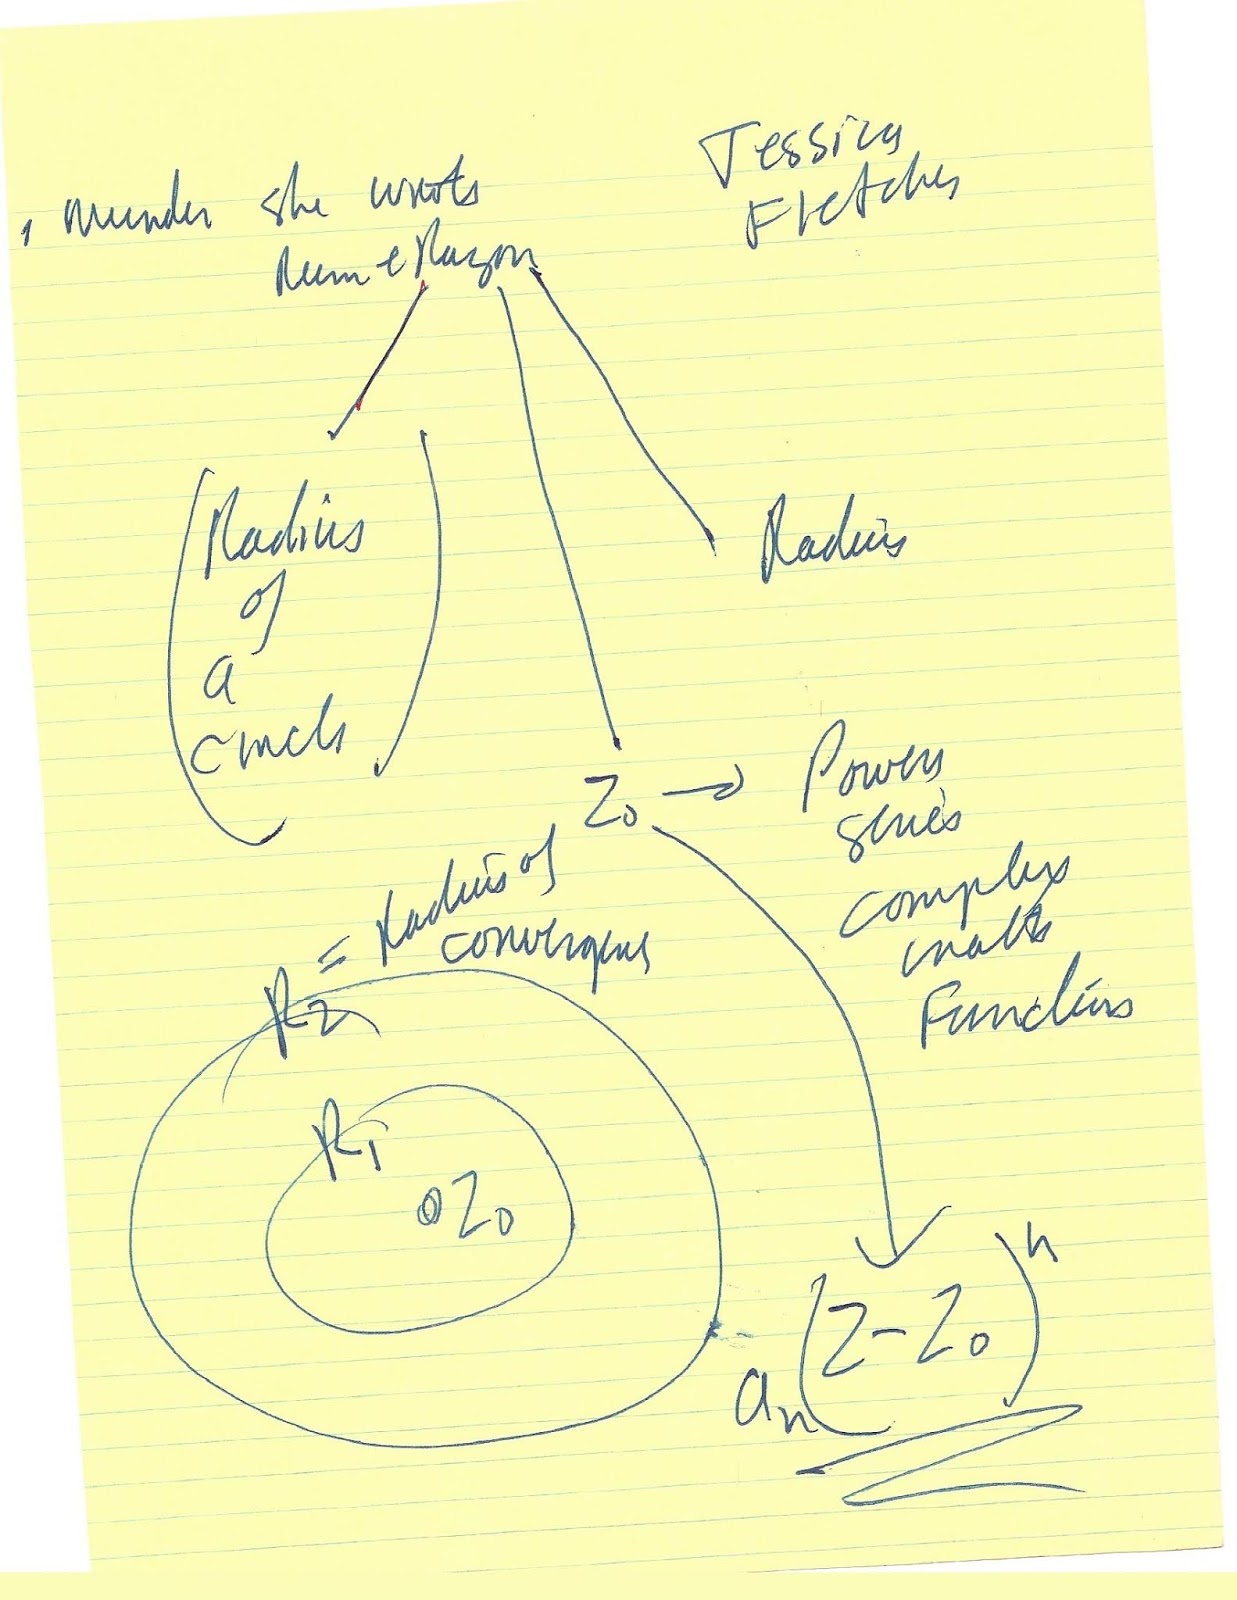 Murder she wrote
Jessica
Fletcher
Radius
of
a
circle
Radius
Z₀ → Powers
series
complex
math
Functions
R₂ = Radius of
convergence
R₁
Z₀
aₙ(Z-Z₀)ⁿ